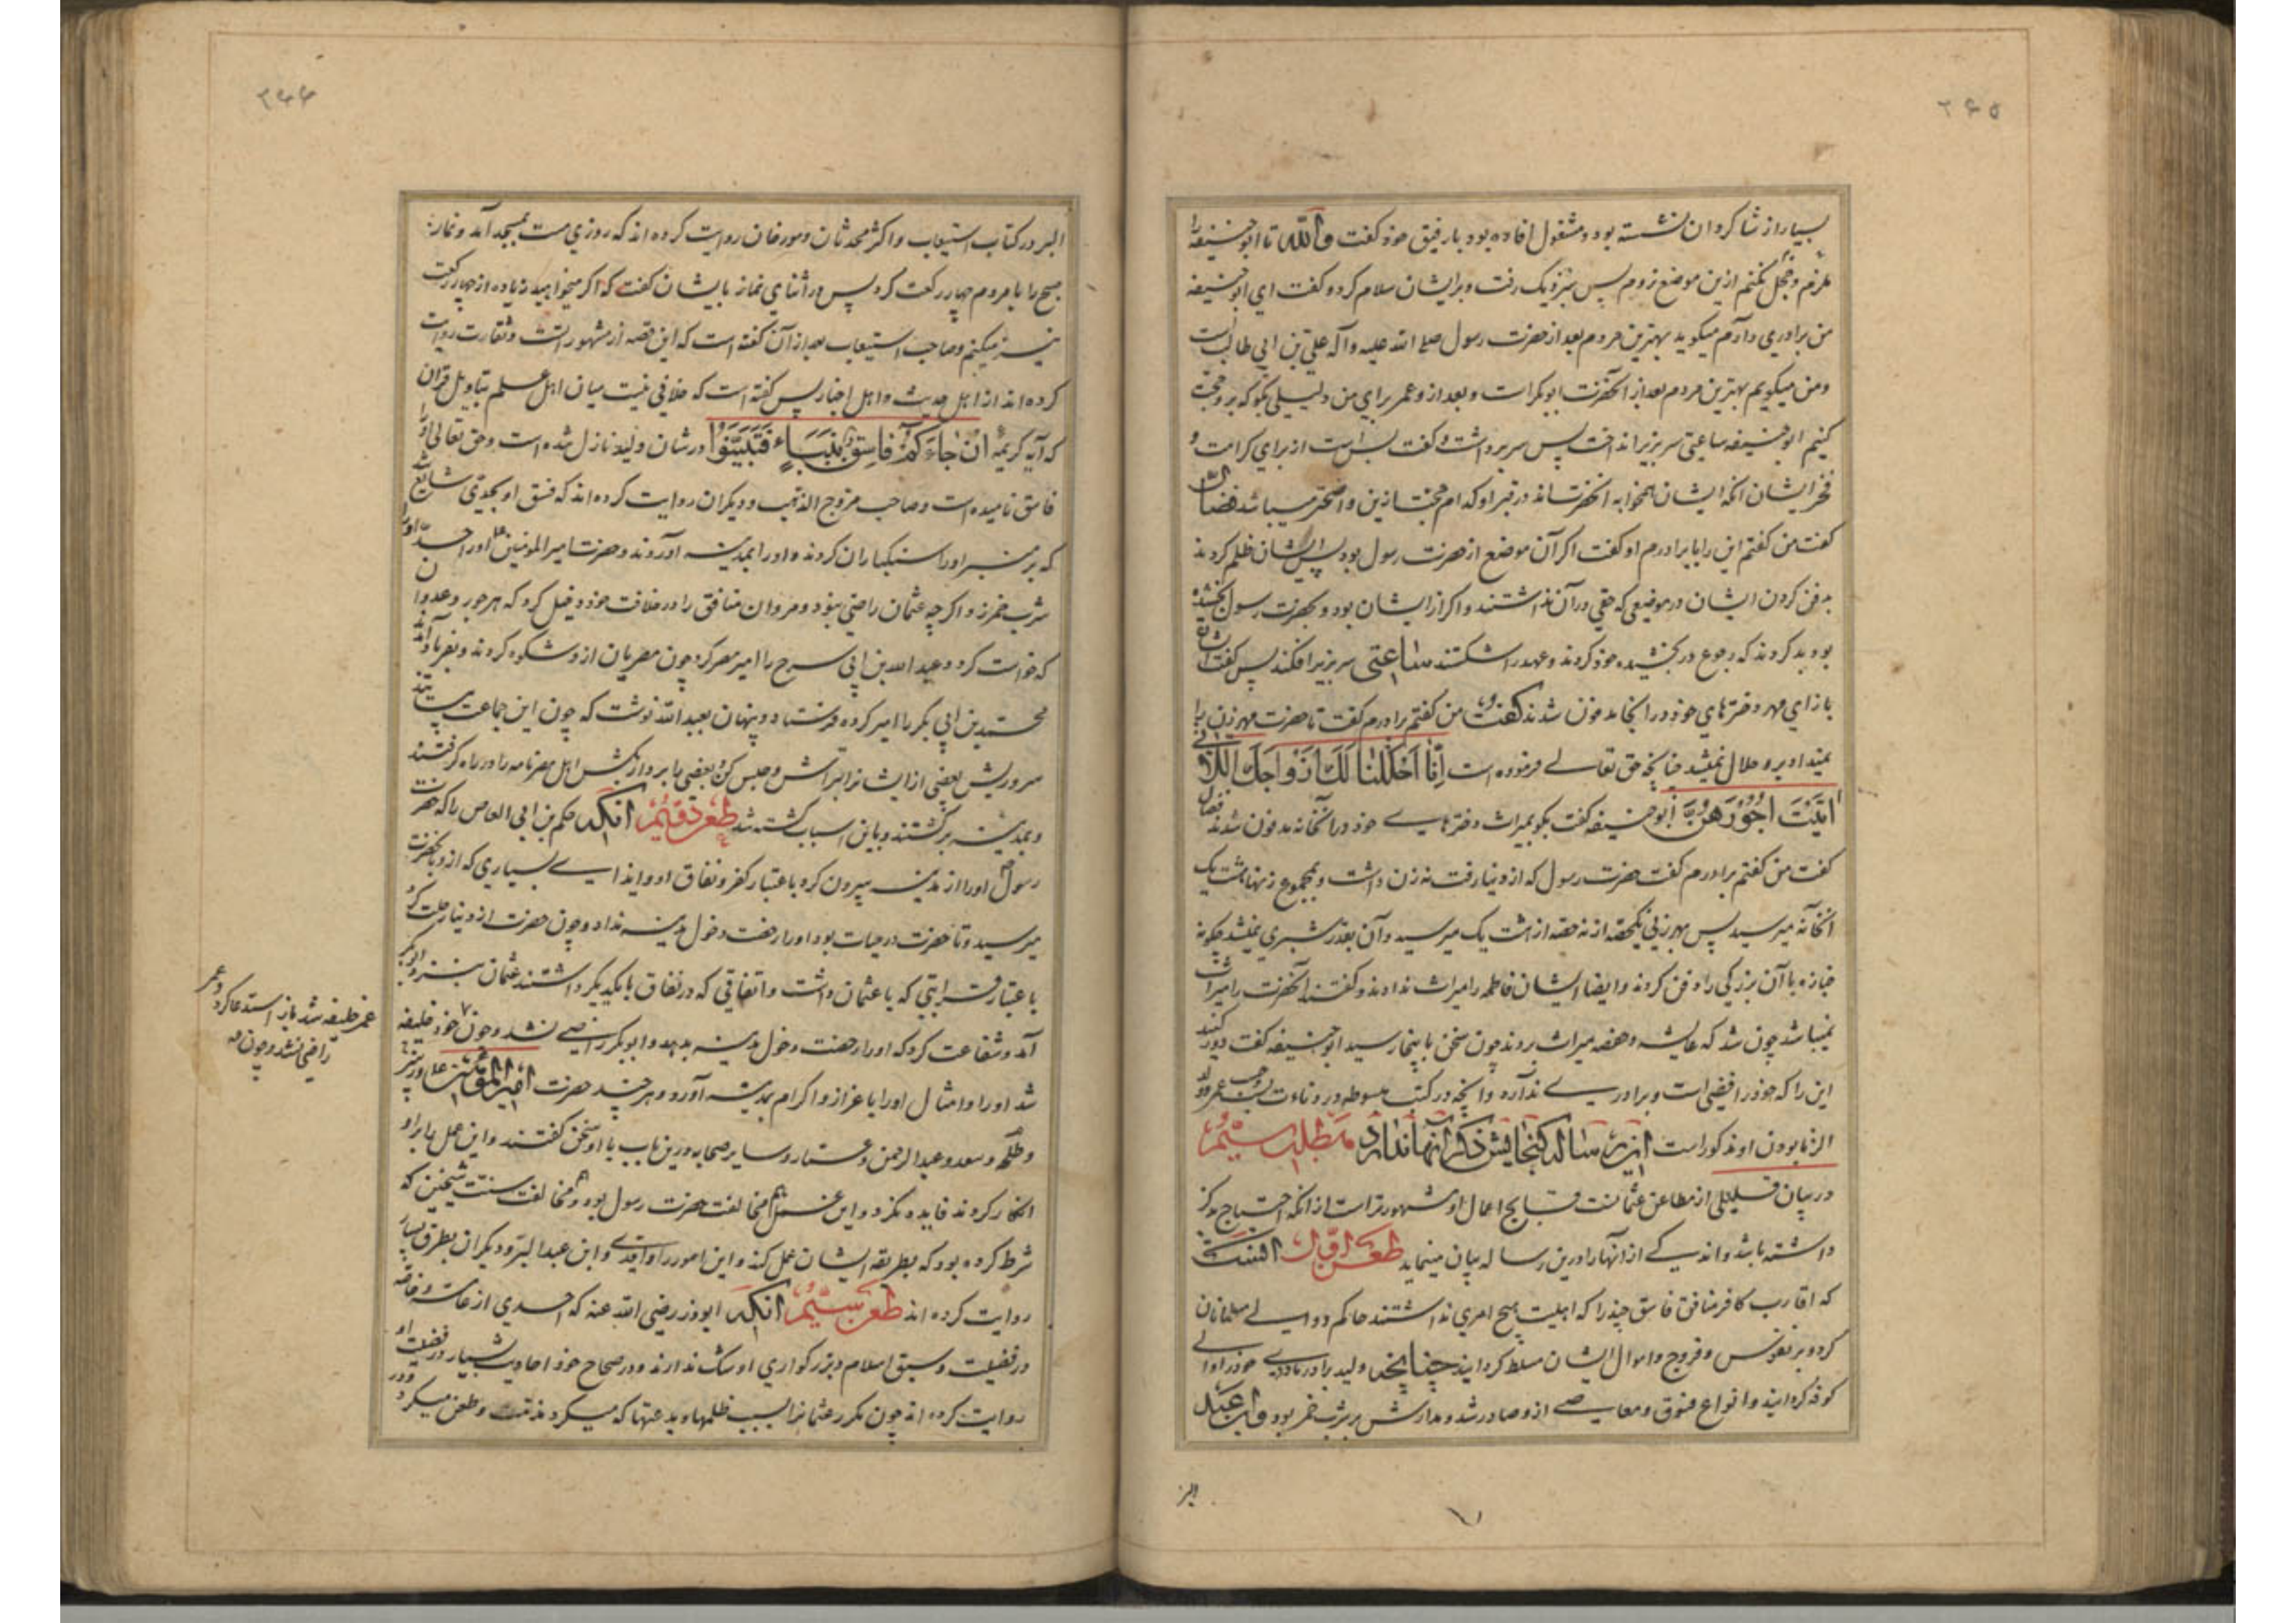 ۲۶۵
بسیار از شاکردان نشسته بود و مشغول افاده بود با رفیق خود کفت والله تا ابوحنیفه را
ملزم و خجل نکنم ازین موضع نروم پس بنزدیک رفت و بر ایشان سلام کرد و کفت ای ابوحنیفه
من برادری دارم میکوید بهترین مردم بعد از حضرت رسول صلی الله علیه وآله علی بن ابی طالبست
ومن میکویم بهترین مردم بعد از آنحضرت ابوبکر است و بعد ازو عمر برای من دلیلی بکو که برو حجت
کنیم ابوحنیفه ساعتی سر بزیر انداخت پس سر برداشت و کفت بس است از برای کرامت و
فخر ایشان آنکه ایشان همخوابه آنحضرتند در قبر او کدام حجت ازین واضحتر میباشد فضال
کفت من کفتم این را با برادرم او کفت اکر آن موضع از حضرت رسول بود پس ایشان ظلم کردند
بدفن کردن ایشان در موضعی که حقی در آن نداشتند و اکر از ایشان بود و بحضرت رسول بخشیده
بودند بد کردند که رجوع در بخشیده خود کردند و عهد را شکستند ساعتی سر بزیر افکند پس کفت ایشان
بازای مهر دخترهای خود در آنجا مدفون شدند کفت من کفتم برادرم کفت تا حضرت مهر زن را
نمیداد برو حلال نمیشد چنانچه حق تعالی فرموده است اِنَّا اَحْلَلْنَا لَكَ اَزْوَاجَكَ اللَّاتِی
اٰتَیْتَ اُجُوْرَهُنَّ ابوحنیفه کفت بکو بمیراث دخترهای خود در آنخانه مدفون شدند فضال
کفت من کفتم برادرم کفت حضرت رسول که از دنیا رفت نه زن داشت و بمجموع زنها هشت یک
آنخانه میرسید پس بهر زنی یکحصه از نه حصه از هشت یک میرسید و آن بقدر شبری نمیشد چکونه
جنازه با آن بزرکی را دفن کردند و ایضا ایشان فاطمه را میراث ندادند و کفتند آنحضرت را میراث
نمیباشد چون شد که عایشه و حفصه میراث بردند چون سخن باینجا رسید ابوحنیفه کفت دور کنید
این را که خود رافضی است و برادری ندارد و آنچه در کتب مبسوطه در دناءت نسب عمر و ولد
الزنا بودن او مذکور است این رساله کنجایش ذکر آنها ندارد مطلب سیّم
در بیان قلیلی از مطاعن عثمانست قبایح اعمال او مشهورتر است از آنکه احتیاج بذکر
داشته باشد و اندکی از آنها را درین رساله بیان مینماید طعن اوّل آنست
که اقارب کافر منافق فاسق خود را که اهلیت هیچ امری نداشتند حاکم و والی مسلمانان
کرد و بر نفوس و فروج و اموال ایشان مسلط کردانید چنانچه ولید برادر مادری خود را والی
کوفه کردانید و انواع فسوق و معاصی ازو صادر شد و مدارش بر شرب خمر بود و ابن عبد
البر
۲۶۶
البر در کتاب استیعاب و اکثر محدثان و مورخان روایت کرده اند که روزی مست بمسجد آمد و نماز
صبح را با مردم چهار رکعت کرد پس در اثنای نماز بایشان کفت که اکر میخواهید زیاده از چهار رکعت
نیز میکنم و صاحب استیعاب بعد از آن کفته است که این قصه از مشهور است و ثقات روایت
کرده اند از اهل حدیث و اهل اخبار پس کفته است که خلافی نیست میان اهل علم بتاویل قرآن
که آیه کریمه اِنْ جَاءَكُمْ فَاسِقٌ بِنَبَاءٍ فَتَبَیَّنُوْا در شان ولید نازل شده است و حق تعالی او را
فاسق نامیده است و صاحب مروج الذهب و دیکران روایت کرده اند که فسق او بحدی شایع شد
که بر منبر او را سنکباران کردند و او را بمدینه آوردند و حضرت امیر المومنین او را حدّ
شرب خمر زد اکرچه عثمان راضی نبود و مروان منافق را در خلافت خود دخیل کرد که هر جور و عدوان
که خواست کرد و عبد الله بن ابی سرح را امیر مصر کرد چون مصریان ازو شکوه کردند و بفریاد آمدند
محمد بن ابی بکر را امیر کرده فرستاد و پنهان بعبد الله نوشت که چون این جماعت بیایند
سر و ریش بعضی از ایشانرا بتراش و حبس کن و بعضی را بر دار بکش اهل مصر نامه را در راه کرفتند
و بمدینه برکشتند و باین اسباب کشته شد طعن دویّم آنکه حکم بن ابی العاص را که حضرت
رسول او را از مدینه بیرون کرد باعتبار کفر و نفاق او و ایذای بسیاری که ازو بآنحضرت
میرسید و تا حضرت در حیات بود او را رخصت دخول مدینه نداد و چون حضرت از دنیا رحلت کرد
باعتبار قرابتی که با عثمان داشت و اتفاقی که در نفاق با یکدیکر داشتند عثمان بنزد ابوبکر
آمد و شفاعت کرد که او را رخصت دخول مدینه بدهد و ابوبکر راضی نشد و چون خود خلیفه
شد او را و امثال او را با عزاز و اکرام بمدینه آورد و هر چند حضرت امیرالمؤمنین و زبیر
و طلحه و سعد و عبد الرحمن و عمار و سایر صحابه درین باب با او سخن کفتند و این عمل را برو
انکار کردند فایده نکرد و این عمل مخالفت حضرت رسول بود و مخالفت سنت شیخین که
شرط کرده بود که بطریقه ایشان عمل کند و این امور را واقدی و ابن عبد البر و دیکران بطرق بسیار
روایت کرده اند طعن سیّم آنکه ابوذر رضی الله عنه که احدی از عامه و خاصه
در فضیلت و سبق اسلام و بزرکواری او شک ندارند و در صحاح خود احادیث بسیار در فضیلت او
روایت کرده اند چون مکرر عثمانرا بسبب ظلمها و بدعتها که میکرد مذمت و طعن میکرد و در
عمر خلیفه شد باز استدعا کرد و عمر
راضی نشد و چون